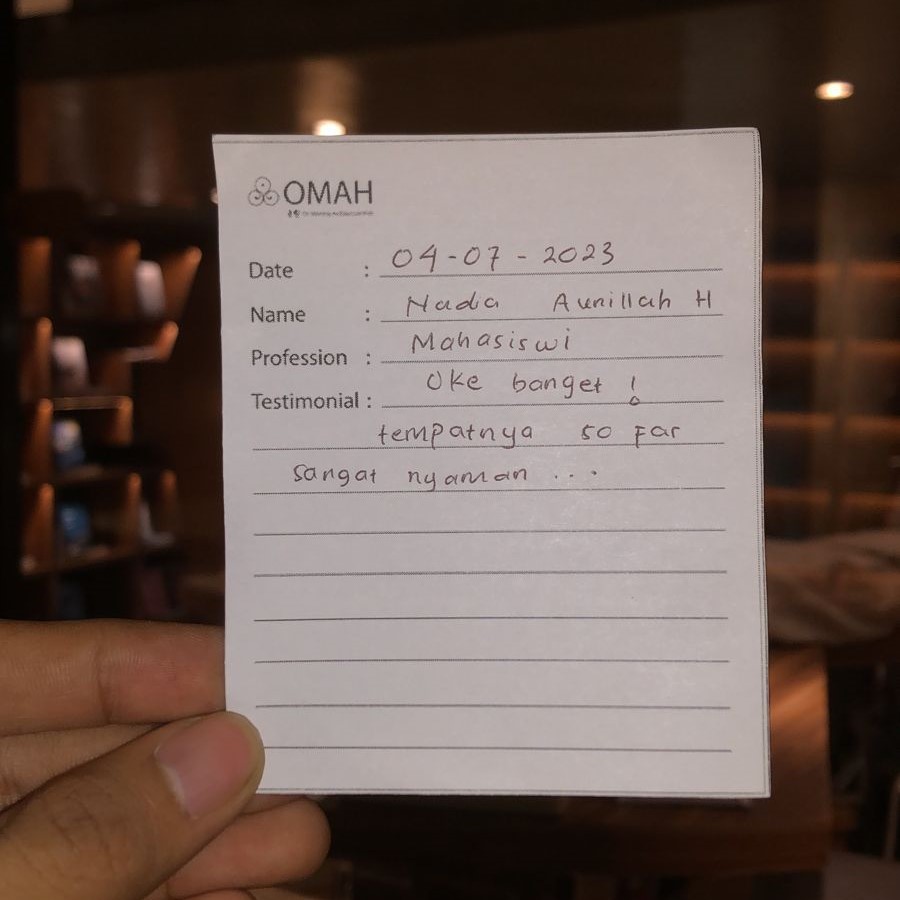 OMAH
Date : 04-07-2023
Name : Nada Aunillah H
Profession : Mahasiswi
Testimonial : Oke banget !
tempatnya so far
sangat nyaman ...